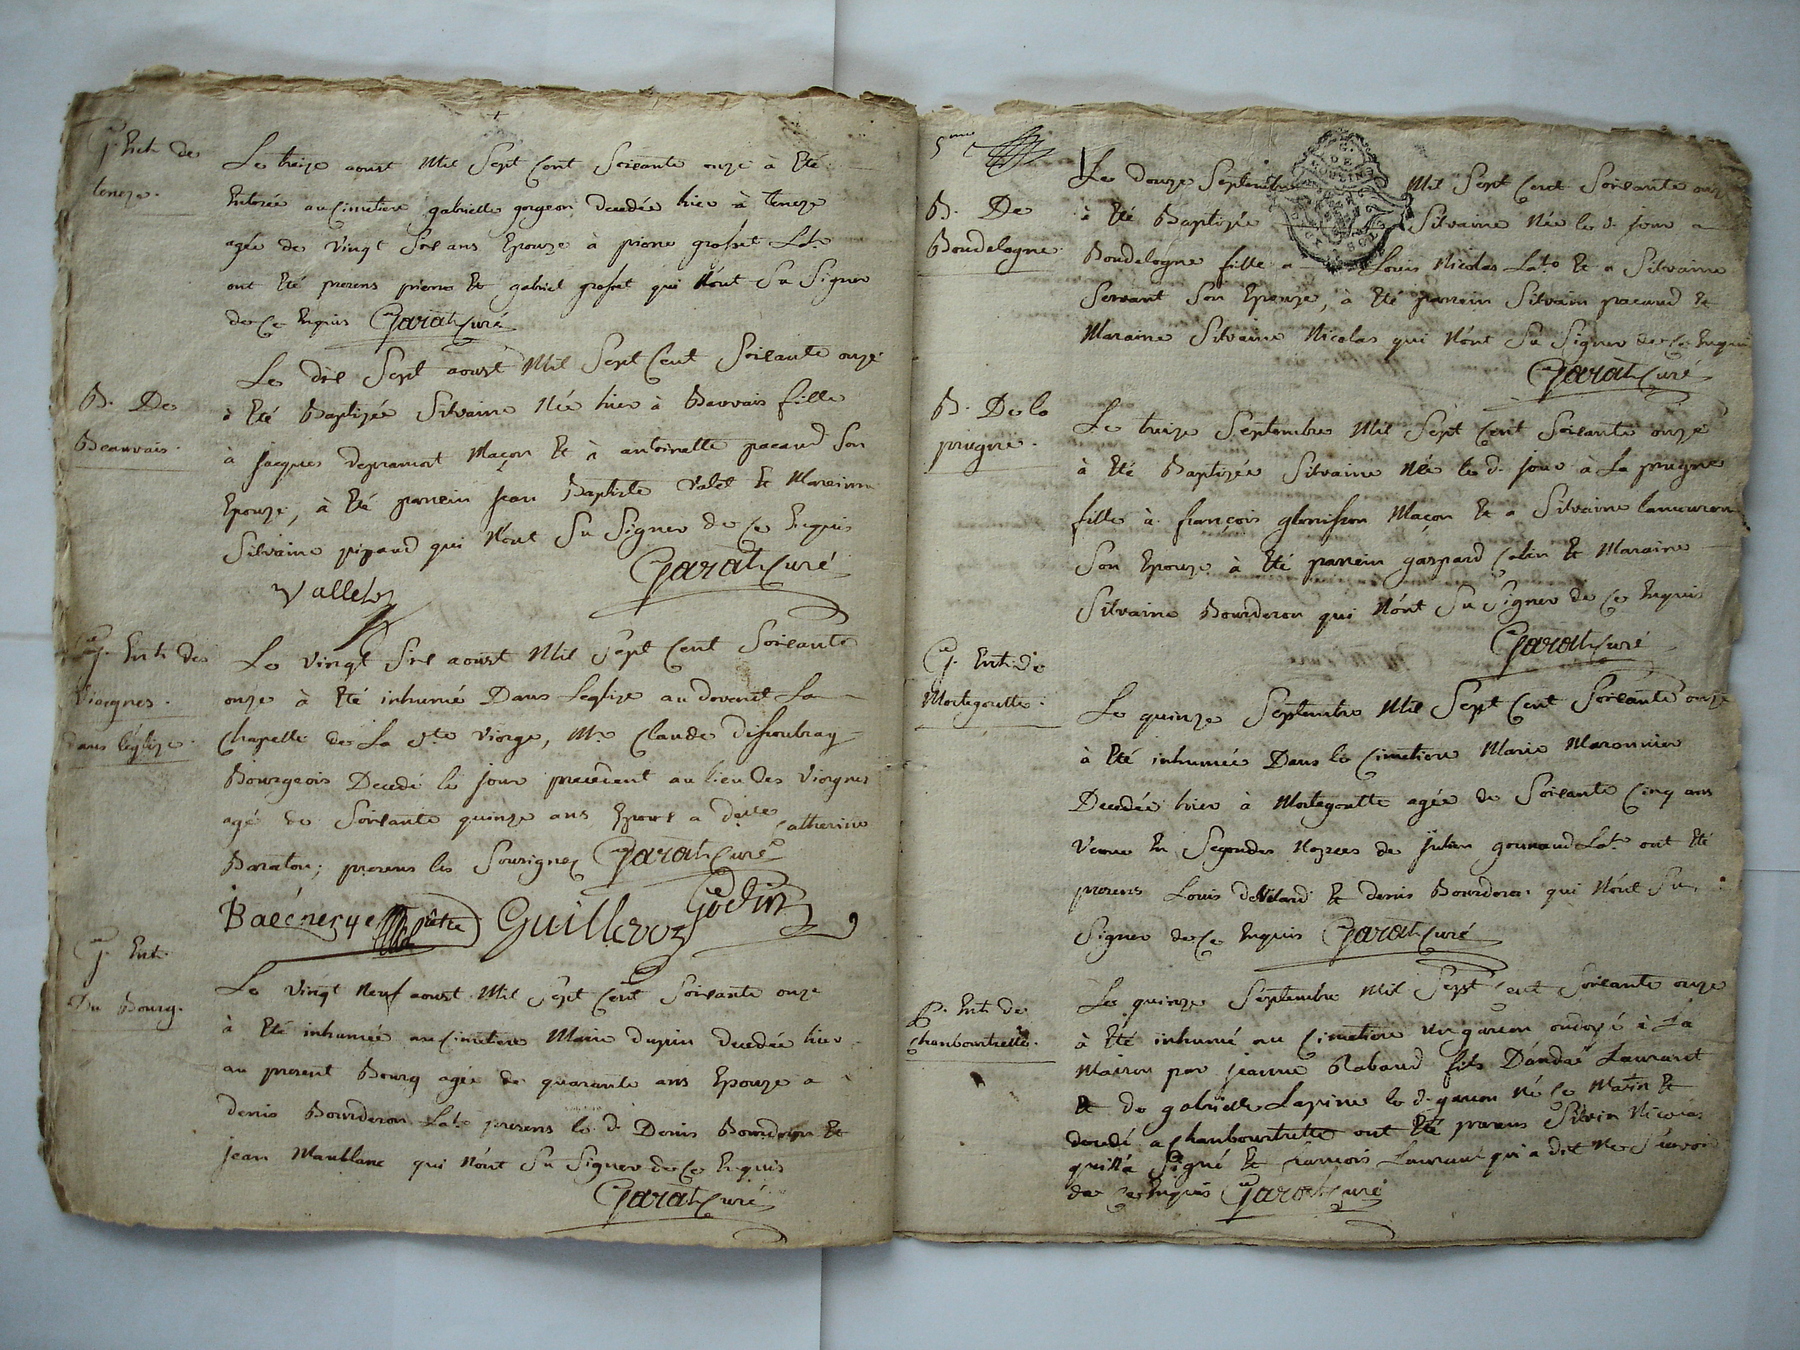 G. Ent. de
teneze.
Le treize aoust Mil Sept Cent Soixante onze a Eté
Enterée au Cimetiere gabrielle gorgeon decedée hier à teneze
agée de vingt Six ans Epouze à pierre grosset Labr
ont Eté presens pierre Et gabriel grosset qui N'ont Su Signer
de Ce Enquis Garat Curé
B. De
Beauvais.
Le dix Sept aoust Mil Sept Cent Soixante onze
à Eté Baptizée Silvaine Née hier à Bauvais fille
à Jacques Maçon Et à antoinette pacaud Son
Epouze, à Eté parrein Jean Baptiste Valet Et Mareinne
Silvaine pipaud qui N'ont Su Signer de Ce Enquis
Valleton Garat Curé
G. Ent. des
Viergnes.
dans l'églize.
Le Vingt Six aoust Mil Sept Cent Soixante
onze à Eté inhumé Dans L'eglize au devent La
Chapelle de La Ste Vierge, Mr Claude
Bourgeois Decedé le Jour precedent au lieu des Viergnes
agé de Soixante quinze ans Epoux a delle Catherine
Baraton; presens les Sousignez Garat Curé
prêtre Guilleroz Godin
G. Ent.
Du Bourg.
Le Vingt Neuf aoust Mil Sept Cent Soixante onze
à Eté inhumée au Cimetiere Marie dupin decedée hier
au present Bourg agée de quarante ans Epouze a
denis Bourderon Labr presens le d. Denis Bourderon Et
Jean Maublanc qui N'ont Su Signer de Ce Enquis
Garat Curé
5me
B. De
Boudelogne.
Le douze Septembre Mil Sept Cent Soixante onze
à Eté Baptizée Silvaine Née le d. Jour a
Boudelogne fille a Louis Nicolas Labr Et a Silvaine
Servant Son Epouze, à Eté parrein Silvain pacaud Et
Maraine Silvaine Nicolas qui N'ont Su Signer de Ce Enquis
Garat Curé
B. De la
prugne.
Le treize Septembre Mil Sept Cent Soixante onze
à Eté Baptizée Silvaine Née le d. Jour à La prugne
fille à françois glomisson Maçon Et a Silvaine
Son Epouze à Eté parrein gaspard Colin Et Maraine
Silvaine Bourderon qui N'ont Su Signer de Ce Enquis
Garat Curé
G. Ent. de
Mortegoutte.
Le quinze Septembre Mil Sept Cent Soixante onze
à Eté inhumée Dans le Cimetiere Marie Maronnier
Decedée hier à Mortegoutte agée de Soixante Cinq ans
Veuve En Segondes Nopces de Julien gounaud Labr ont Eté
presens Louis devillard Et denis Bourderon qui N'ont Su
Signer de Ce Enquis Garat Curé
P. Ent. de
Chanbourtrette.
Le quinze Septembre Mil Sept Cent Soixante onze
à Eté inhumé au Cimetiere un garcon ondoyé à La
Maison par Jeanne Rabaud fils D'andré Laurent
Et de gabrielle Lapine le d. garcon Né Ce Matin Et
decedé a Chanbourtrette ont Eté presens Silvin Nicolas
qui n'a Signé Et francois Laurent qui a dit Ne Scavoir
de Ce Enquis Garat Curé